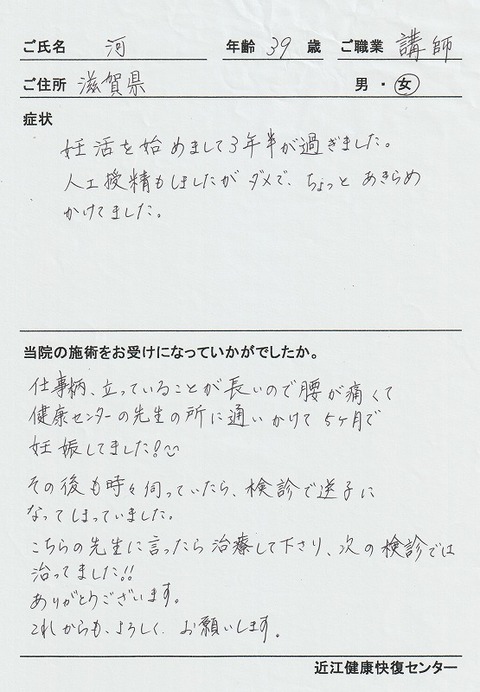 ご氏名 河 年齢 39 歳 ご職業 講師
ご住所 滋賀県 男・女
症状
妊活を始めまして3年半が過ぎました。
人工授精もしましたがダメで、ちょっとあきらめ
かけてました。
当院の施術をお受けになっていかがでしたか。
仕事柄、立っていることが長いので腰が痛くて
健康センターの先生の所に通いかけて5ヶ月で
妊娠してました!
その後も時々伺っていたら、検診で逆子に
なってしまっていました。
こちらの先生に言ったら治療して下さり、次の検診では
治ってました!!
ありがとうございます。
これからも、よろしくお願いします。
近江健康快復センター